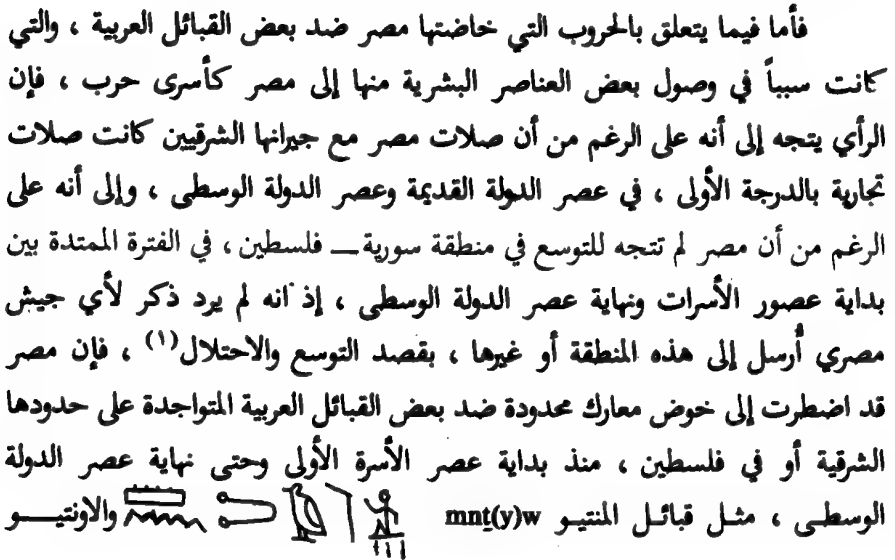 فأما فيما يتعلق بالحروب التي خاضتها مصر ضد بعض القبائل العربية ، والتي
كانت سبباً في وصول بعض العناصر البشرية منها إلى مصر كأسرى حرب ، فإن
الرأي يتجه إلى أنه على الرغم من أن صلات مصر مع جيرانها الشرقيين كانت صلات
تجارية بالدرجة الأولى ، في عصر الدولة القديمة وعصر الدولة الوسطى ، وإلى أنه على
الرغم من أن مصر لم تتجه للتوسع في منطقة سورية ــ فلسطين ، في الفترة الممتدة بين
بداية عصور الأسرات ونهاية عصر الدولة الوسطى ، إذ انه لم يرد ذكر لأي جيش
مصري أُرسل إلى هذه المنطقة أو غيرها ، بقصد التوسع والاحتلال(١) ، فإن مصر
قد اضطرت إلى خوض معارك محدودة ضد بعض القبائل العربية المتواجدة على حدودها
الشرقية أو في فلسطين ، منذ بداية عصر الأسرة الأولى وحتى نهاية عصر الدولة
الوسطى ، مثل قبائل المنتيو mnṯ(y)w والاونتيو